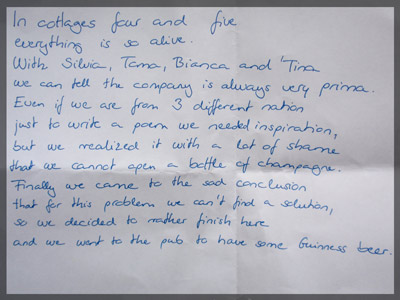 In cottages four and five
everything is so alive.
With Silvia, Tama, Bianca and Tina
we can tell the company is always very prima.
Even if we are from 3 different nation
just to write a poem we needed inspiration,
but we realized it with a lot of shame
that we cannot open a bottle of champagne.
Finally we came to the sad conclusion
that for this problem we can't find a solution,
so we decided to rather finish here
and we went to the pub to have some Guinness beer.